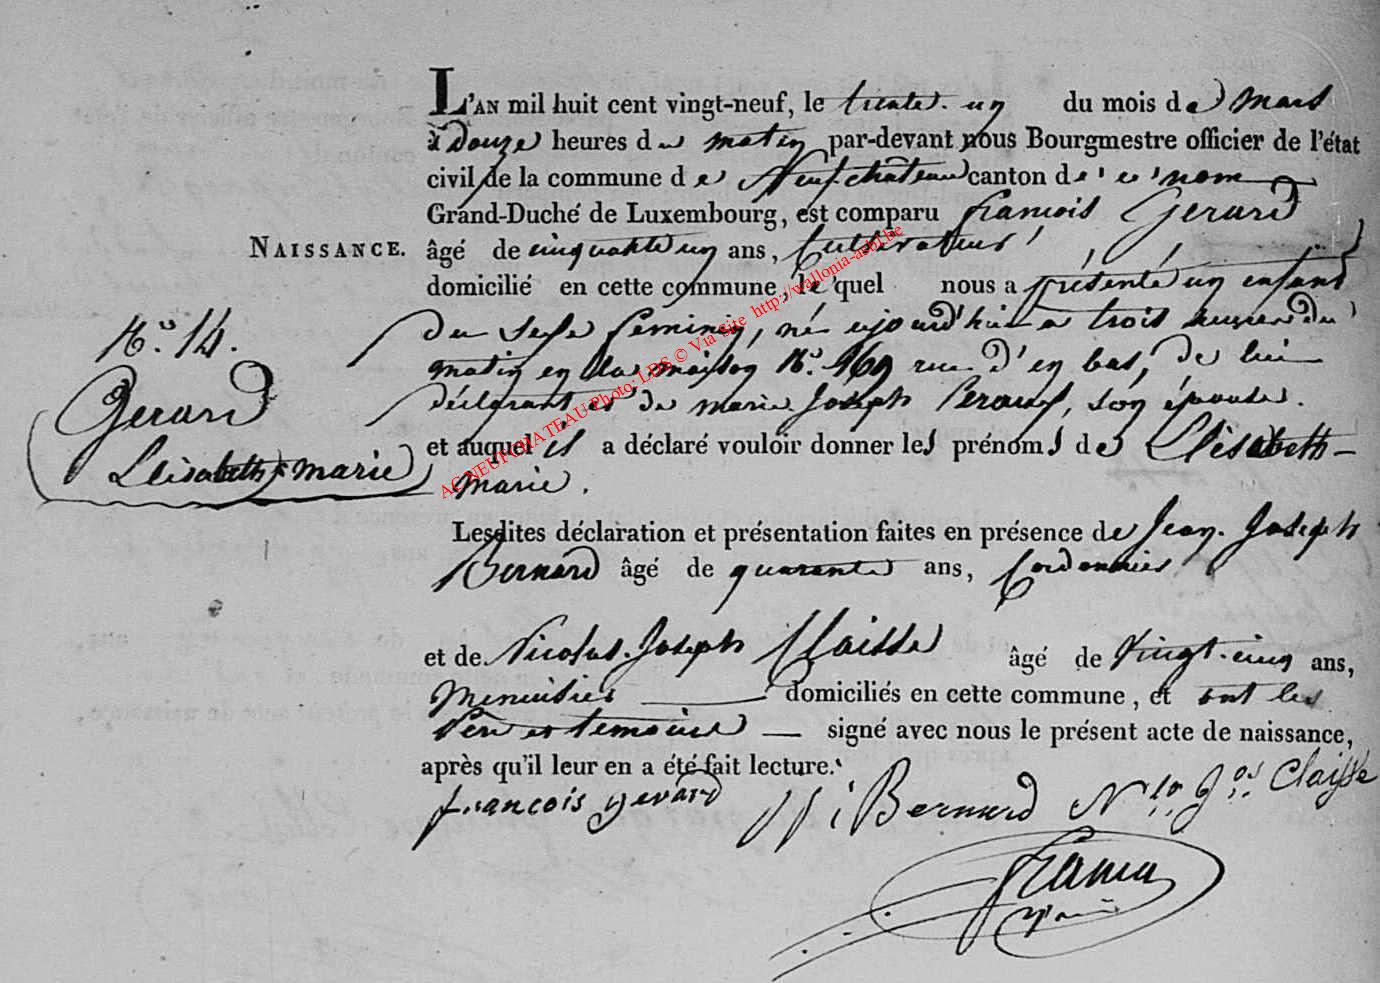 L'AN mil huit cent vingt-neuf, le trente-un du mois de Mars
à Douze heures du matin par-devant nous Bourgmestre officier de l'état
civil de la commune de Neufchâteau canton de ce nom
Grand-Duché de Luxembourg, est comparu François Gerard
NAISSANCE. âgé de cinquante un ans, Cultivateur
domicilié en cette commune, le quel nous a présenté un enfant
N.° 14. du sexe feminin, né ajourd'hui a trois heures du
matin en la maison N.° 169 rue d'en bas, de lui
Gerard déclarant et de marie Joseph, son épouse.
et auquel il a déclaré vouloir donner les prénoms de Elisabeth-
Elisabeth-marie marie.
Lesdites déclaration et présentation faites en présence de Jean-Joseph
Bernard âgé de quarante ans, Cordonnier
et de Nicolas-Joseph Claisse âgé de Vingt-cinq ans,
Menuisier domiciliés en cette commune, et ont les
Père et temoins signé avec nous le présent acte de naissance,
après qu'il leur en a été fait lecture.
françois gerard JJ Bernard N.las Jos. Claisse
AC NEUFCHATEAU Photo: LDS © Via Site http://wallonia-asbl.be